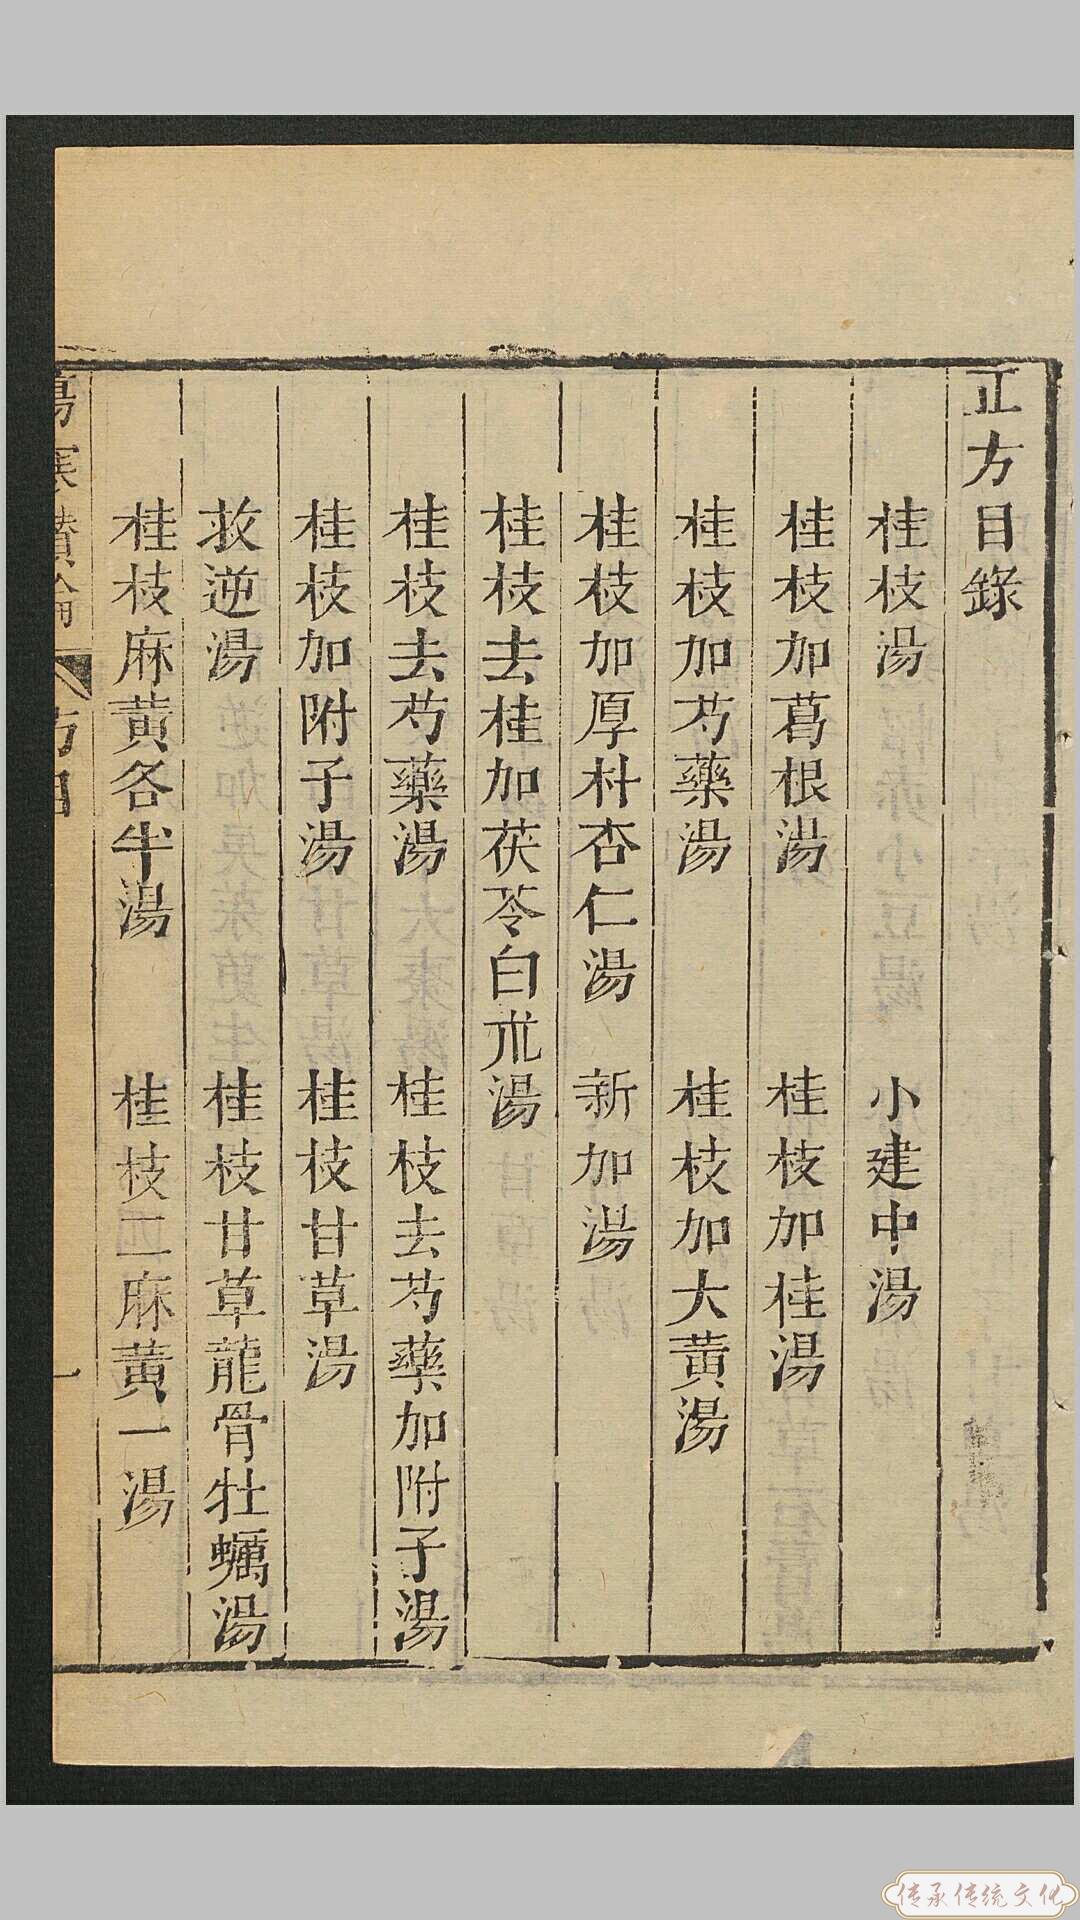 正方目錄
桂枝湯 小建中湯
桂枝加葛根湯 桂枝加桂湯
桂枝加芍藥湯 桂枝加大黃湯
桂枝加厚朴杏仁湯 新加湯
桂枝去桂加茯苓白朮湯
桂枝去芍藥湯 桂枝去芍藥加附子湯
桂枝加附子湯 桂枝甘草湯
救逆湯 桂枝甘草龍骨牡蠣湯
桂枝麻黃各半湯 桂枝二麻黃一湯
傷寒纘論 方目 一
传承传统文化